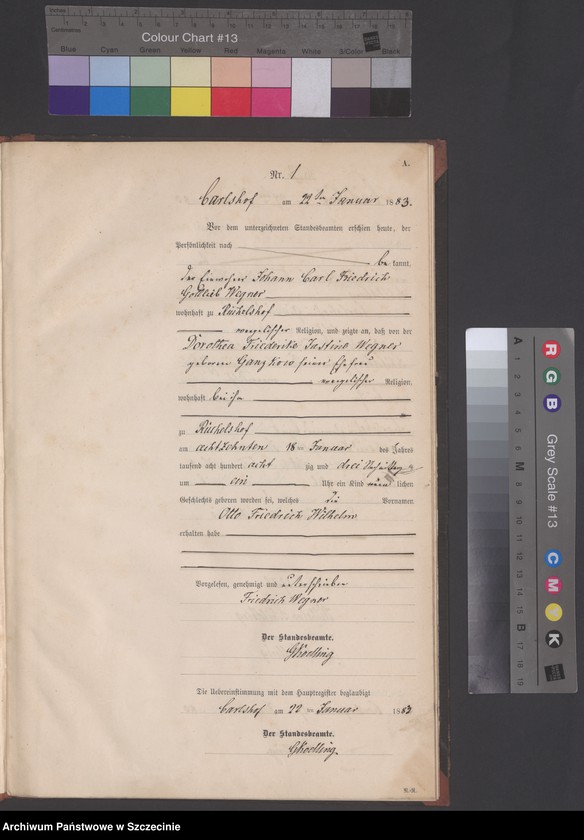 Inches
Centimetres
Colour Chart #13
Blue Cyan Green Yellow Red Magenta White 3/Color Black
A.
Nr. 1
Carlshof am 22ten Januar 1883.
Vor dem unterzeichneten Standesbeamten erschien heute, der
Persönlichkeit nach
be kannt,
der Einwohner Johann Carl Friedrich
Gottlieb Wegner
wohnhaft zu Rüchelshof
evangelischer Religion, und zeigte an, daß von der
Dorothea Friederike Justine Wegner
geborene Ganzkow seiner Ehefrau
evangelischer Religion,
wohnhaft bei ihm
zu Rüchelshof
am achtzehnten 18ten Januar des Jahres
tausend acht hundert acht zig und drei Nachmittags
um ein Uhr ein Kind männ lichen
Geschlechts geboren worden sei, welches die Vornamen
Otto Friedrich Wilhelm
erhalten habe
Vorgelesen, genehmigt und unterschrieben
Friedrich Wegner
Der Standesbeamte.
Die Uebereinstimmung mit dem Hauptregister beglaubigt
Carlshof am 22ten Januar 1883
Der Standesbeamte.
A 1 2 3 4 5 6 M 8 9 10 11 12 13 14 15 B 17 18 19
R G B
Grey Scale #13
C M Y K
Archiwum Państwowe w Szczecinie